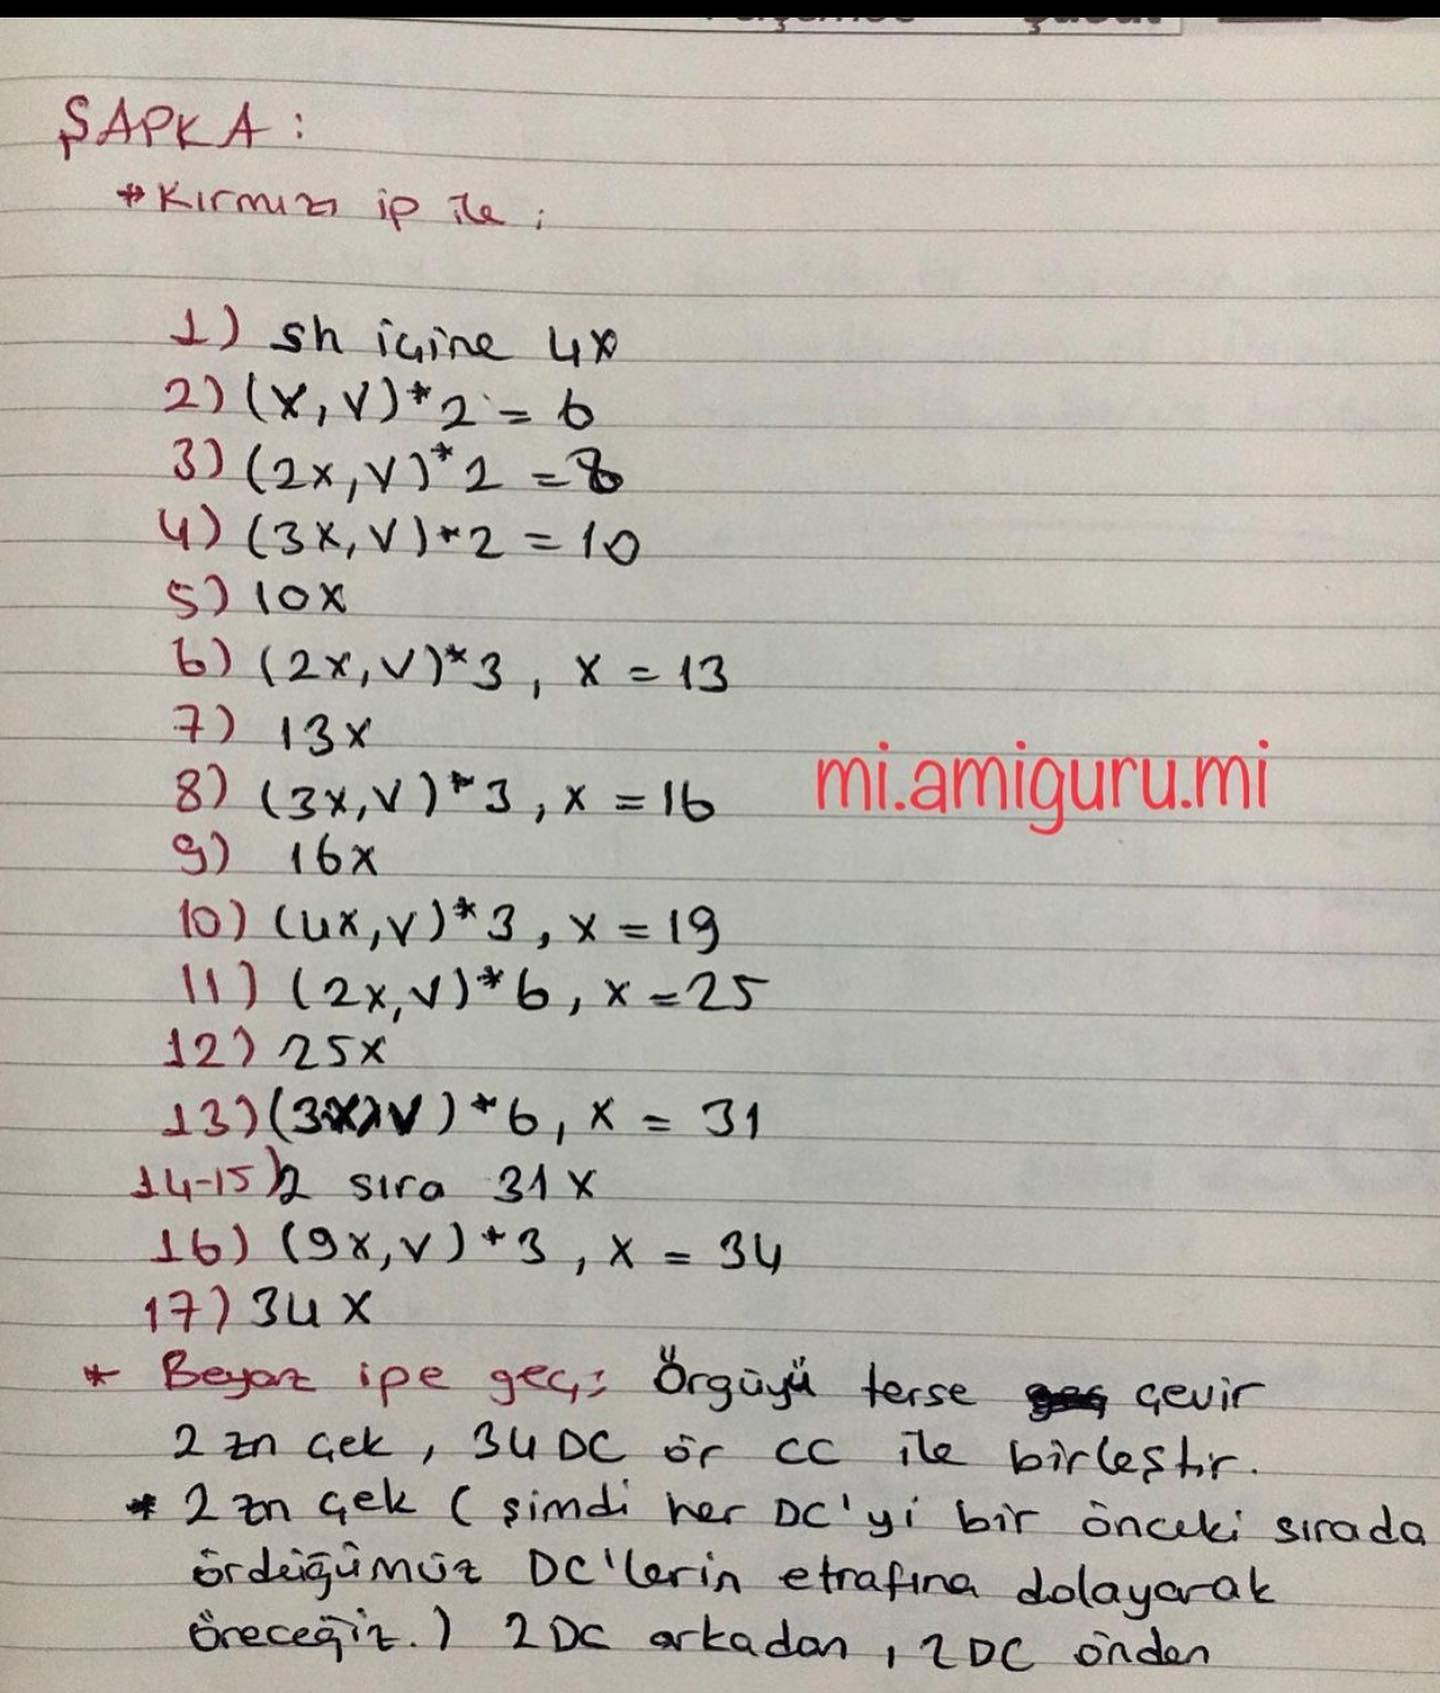 ŞAPKA :
* Kırmızı ip ile ;
1) sh içine 4x
2) (x, v)*2 = 6
3) (2x, v)*2 = 8
4) (3x, v)*2 = 10
5) 10x
6) (2x, v)*3, x = 13
7) 13x
8) (3x, v)*3, x = 16
mi.amiguru.mi
9) 16x
10) (4x, v)*3, x = 19
11) (2x, v)*6, x = 25
12) 25x
13) (3x, v)*6, x = 31
14-15) 2 sıra 31x
16) (9x, v)*3, x = 34
17) 34x
* Beyaz ipe geç: Örgüyü terse çevir
2 zn çek, 34 DC ör CC ile birleştir.
* 2 zn çek ( şimdi her DC'yi bir önceki sırada
ördüğümüz DC'lerin etrafına dolayarak
öreceğiz.) 2 DC arkadan, 2 DC önden